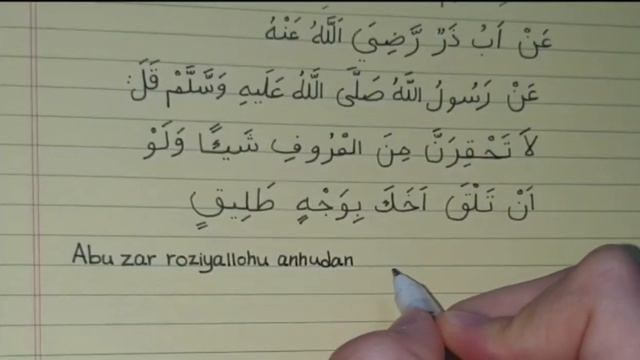 عَنْ اَبُ ذَرٌ رَّضِيَ اَللَّهُ عَنْهُ
عَنْ رَسُولُ اللَّهُ صَلَّى اللَّهُ عَلَيهِ وَسَّلَّمْ قَلَ:
لاَ تَحْقِرَنَّ مِنَ الْمْرُوفِ شَيئًا وَلَوْ
اَنْ تَلْقَ اَخَكَ بِوَجْهٍ طَلِيقٍ
Abu zar roziyallohu anhudan